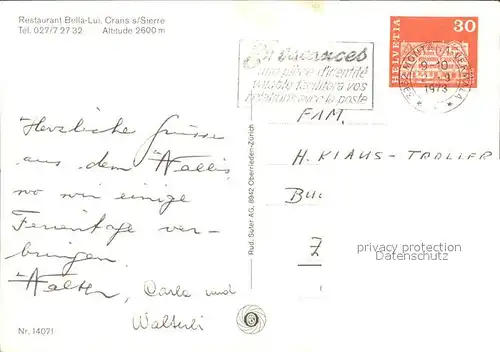 Restaurant Bella-Lui, Crans s/Sierre
Tel. 027/7 27 32 Altitude 2600 m
HELVETIA 30
En vacances
une pièce d'identité
valable facilitera vos
relations avec la poste
1973
Herzliche Grüsse
aus dem Wallis,
wo wir einige
Ferientage ver-
bringen.
Walter, Carla und
Walterli
Rud. Suter AG, 8942 Oberrieden-Zürich
FAM.
H. KLAUS-TROLLER
Z
privacy protection
oldthing.de
Nr. 14071